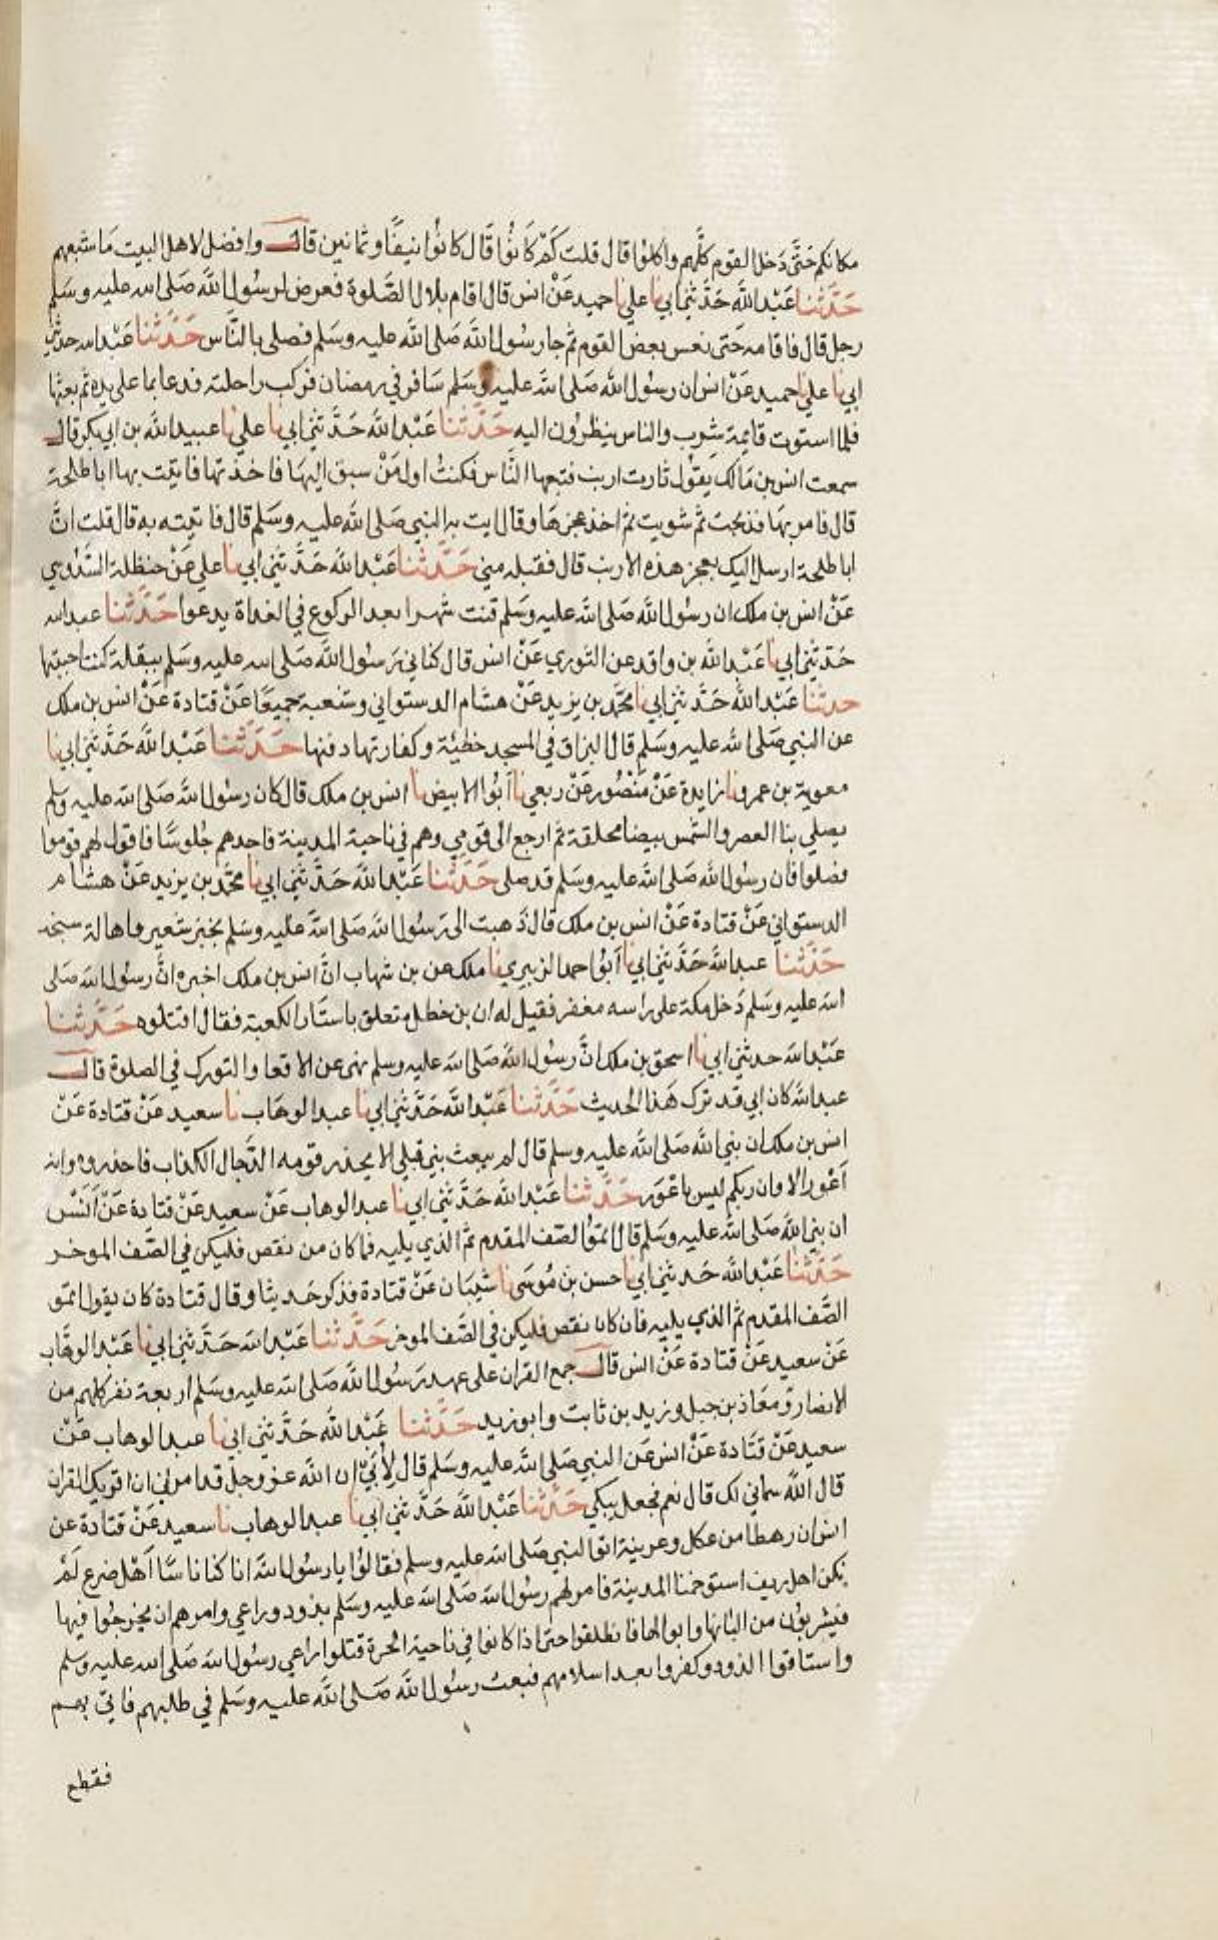 مكانكم حَتَّى دَخل القوم كلَّهم واكلوُا قال قلت كَمْ كَانوُا قَال كانوُا نيفًا وثمانين قال وافضل لاهل البيت مَا شبعهم
حَدَّثنا عَبْد الله حَدَّثني ابي نا علي نا حميد عَنْ انس قال اقام بلال الصَّلوة فعرض لرسُول الله صَلى الله عليه وسَلم
رجل قال فاقامه حَتى نعس بعض القوم ثم جا رسُول الله صَلى الله عليه وسَلم فصلى بالنَّاس حَدَّثنا عَبْد الله حدثني
ابي نا علي نا حميد عَنْ انس ان رسوُل الله صَلى الله عليه وسَلم سَافر في رمضان فركب راحلته فدعا بما على يده ثم بعثها
فلما استوت قايمة شرب والناس ينظرُون اليه حَدَّثنا عَبْد الله حَدَّثني ابي نا علي نا عبيد الله بن ابي بكر قال
سمعت انس بن مَالك يقوُل ثارت ارنب فتبعها النَّاس فكنتُ اول مَنْ سبق اليهَا فاخذتها فاتيت بها ابا طلحة
قال فامر بهَا فذبحت ثم شويت ثم اخذ عجزهَا وقال ايت به النبي صَلى الله عليه وسَلم قال فاتيته به قال قلت انَّ
ابا طلحة ارسل اليك بعجز هذه الارنب قال فقبله مني حَدَّثنا عَبْد الله حَدَّثني ابي نا علي عَنْ حنظلة السَّدُوسي
عَنْ انس بن ملك ان رسُول الله صَلى الله عليه وسَلم قنت شهرا بعد الركوع في الغداة يدعوا حَدَّثنا عبد الله
حَدثني ابي نا عَبْد الله بن واقد عن الثوري عَنْ انس قال كناني رَسوُل الله صَلى الله عليه وسَلم ببقلة كنت اجتنيها
حدثنا عَبْد الله حَدَّثني ابي نا محَّمد بن يزيد عَنْ هشام الدستواني وشعبة جميعًا عَنْ قتادة عَنْ انس بن ملك
عن النبي صَلى الله عليه وسَلم قال البزاق في المسجد خطيئة وكفارتها دفنها حَدَّثنا عَبْد الله حَدَّثني ابي نا
معوية بن عمرو نا زايدة عَنْ مَنْصُور عَنْ ربعي نا ابُوا الابيض نا انس بن ملك قال كان رسوُل الله صَلى الله عليه وسلم
يصلي بنا العصر والشمس بيضا محلقة ثم ارجع الى قومي وهم في ناحية المدينة فاجدهم جلوسًا فاقول لهم قوموا
فصلوا فان رسوُل الله صَلى الله عليه وسَلم قد صلى حَدَّثنا عَبْد الله حَدَّثني ابي نا محَّمد بن يزيد عَنْ هشام
الدستواني عَنْ قتادة عَنْ انس بن ملك قال ذَهبت الى رَسوُل الله صَلى الله عليه وسَلم بخبز شعير واهالة سنخة
حَدَّثنا عبد الله حَدَّثني ابي نا ابُوا احمد الزبيري نا ملك عن بن شهاب انَّ انس بن ملك اخبره انَّ رسوُل الله صَلى
الله عليه وسَلم دَخل مكة على راسه مغفر فقيل له ان بن خطل متعلق باستار الكعبة فقال اقتلوه حَدَّثنا
عَبْد الله حدثني ابي نا اسحق بن ملك انَّ رسُول الله صَلى الله عليه وسلم نهى عن الاقعا والتورك في الصلوة قال
عبد الله كان ابي قد ترك هَذا الحديث حَدَّثنا عَبْد الله حَدَّثني ابي نا عبد الوهَاب نا سعيد عَنْ قتادة عَنْ
انس بن ملك ان بني الله صَلى الله عليه وسلم قال لم يبعث بني قبلي الا يحذر قومه الدَّجال الكذاب فاحذروه وانه
اعْور الا وان ربكم ليس باعْوَر حَدَّثنا عَبْد الله حَدَّثني ابي نا عبد الوهاب عَنْ سعيد عَنْ قتادة عَنْ اَنَسْ
ان بني الله صَلى الله عليه وسَلم قال اتموُّا الصَّف المقدم ثم الذي يليه فما كان من نقص فليكن في الصَّف الموخر
حَدَّثنا عَبْد الله حَدثني ابي نا حسن بن مُوسَى نا شيبَان عَنْ قتادة فذكر حَديثا وقال قتادة كان يقول اتمو
الصَّف المقدم ثم الذي يليه فان كان نقص فليكن في الصَّف الموخر حَدَّثنا عَبْد الله حَدَّثني ابي نا عَبْد الوهَّاب
عَنْ سعيد عَنْ قتادة عَنْ انس قال جمع القران على عهد رَسُول الله صَلى الله عليه وسَلم اربعة نفر كلهم من
الانصار ومَعَاذ بن جبل وزيد بن ثابت وابو زيد حَدَّثنا عَبْد الله حَدَّثني ابي نا عبد الوهاب عَنْ
سعيد عَنْ قتَادة عَنْ انس عَن النبي صَلى الله عليه وسَلم قال لأبَيّ ان الله عز وجل قد امرني ان اقريك القران
قال اللهُ سماني لك قال نعم فجعل يبكي حَدَّثنا عَبْد الله حَدَّثني ابي نا عبد الوهاب نا سعيد عَنْ قتادة عن
انس ان رهطا من عكل وعرينة اتوا النبي صَلى الله عليه وسلم فقالوُا يا رسوُل الله انا كنا ناسًا اَهْل ضرع لَمْ
نكن اهل ريف استوخمنا المدينة فامر لهم رسُول الله صَلى الله عليه وسَلم بذود وراعي وامرهم ان يخرجُوا فيها
فيشربوُن من البانها وابوالها فانطلقوا حتى اذا كانوا في ناحية الحرة قتلوا راعي رسوُل الله صَلى الله عليه وسلم
واستاقوا الذود وكفروا بعد اسلامهم فبعث رسُول الله صَلى الله عليه وسَلم في طلبهم فاتي بهم
فقطع